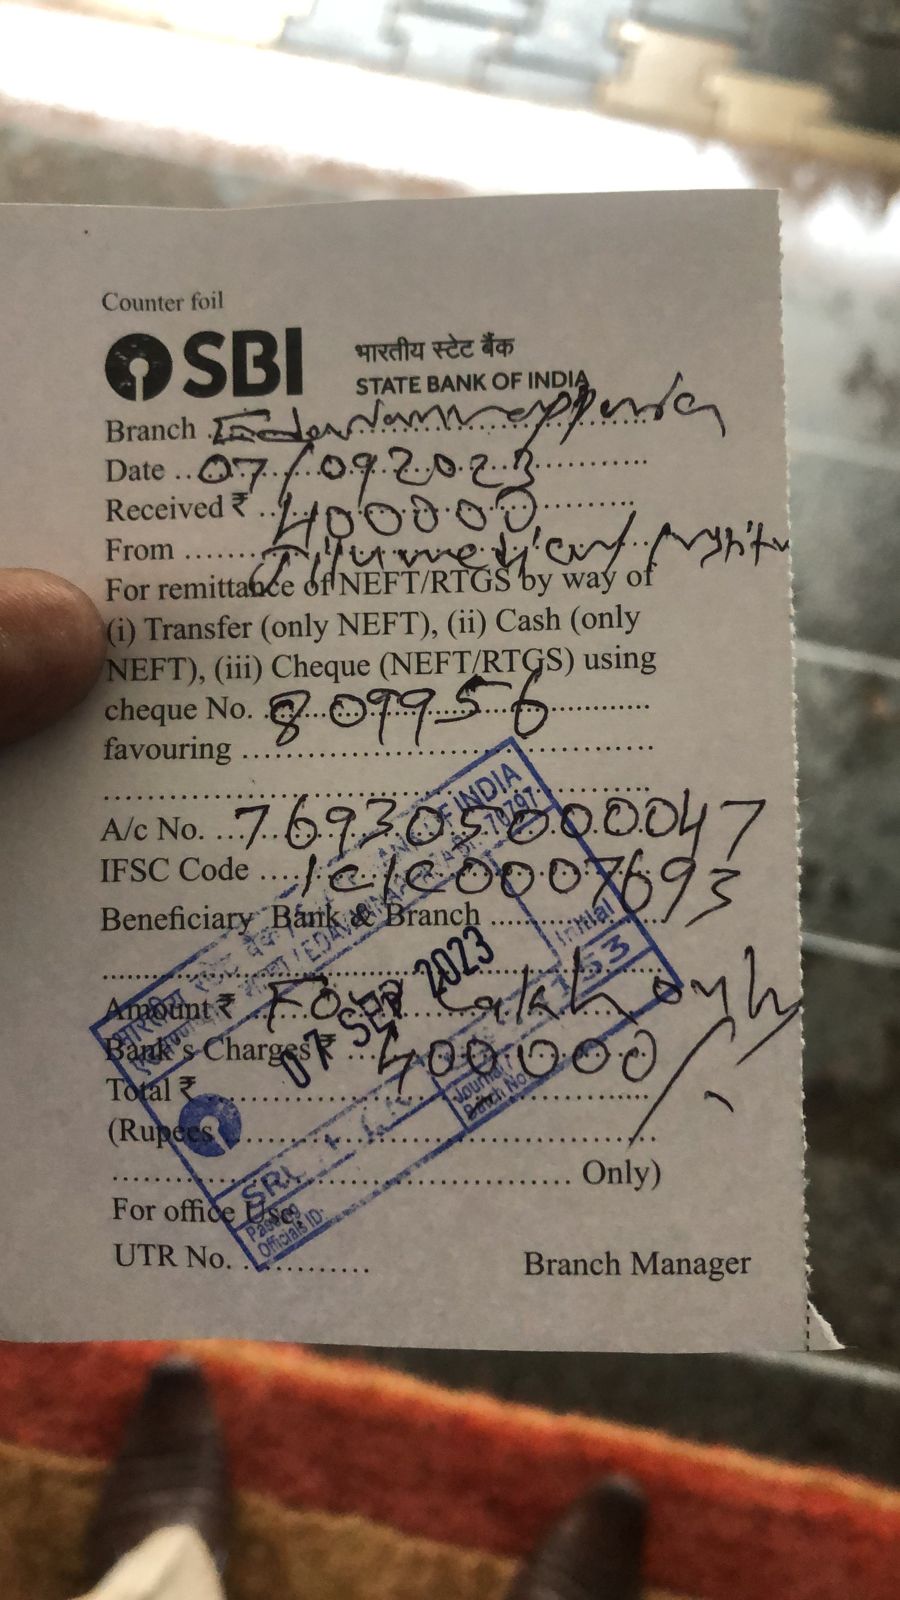 Counter foil
SBI
भारतीय स्टेट बैंक
STATE BANK OF INDIA
Branch
Date 07/09 2023
Received ₹ 400000
From
For remittance of NEFT/RTGS by way of
(i) Transfer (only NEFT), (ii) Cash (only
NEFT), (iii) Cheque (NEFT/RTGS) using
cheque No. 809956
favouring
A/c No. 769305000047
IFSC Code ICIC0007693
Beneficiary Bank & Branch
Amount ₹ Four Lakh only
Bank's Charges ₹ 400000
Total ₹
(Rupees
Only)
For office Use
UTR No.
Branch Manager
भारतीय स्टेट बैंक / BANK OF INDIA
70797
07 SEP 2023
Initial
153
Journal /
Batch No.
Passing
Officials ID: